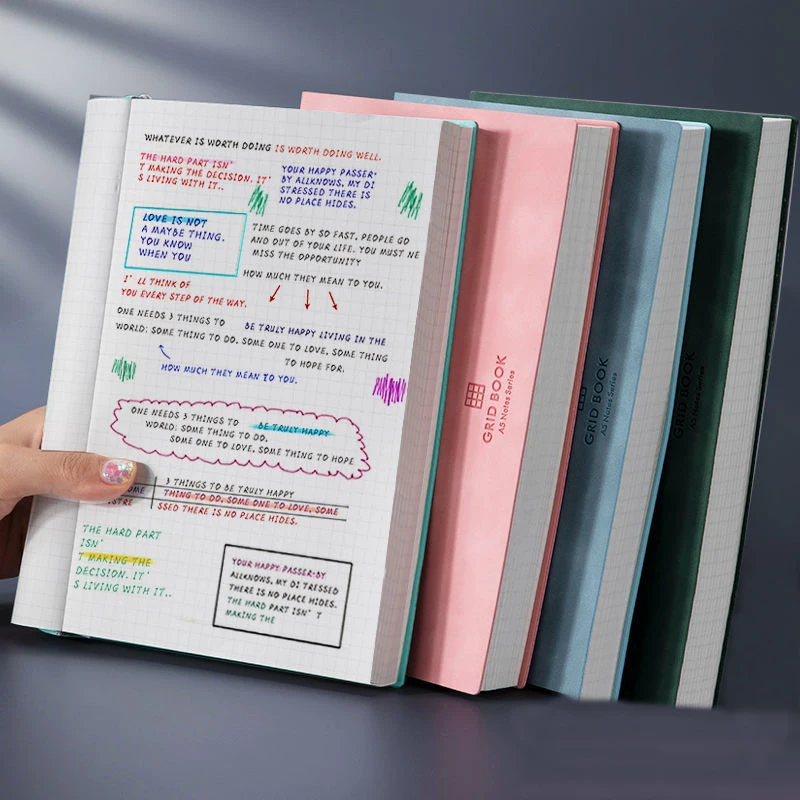 WHATEVER IS WORTH DOING IS WORTH DOING WELL.
THE HARD PART ISN'
T MAKING THE DECISION. IT'
S LIVING WITH IT..
YOUR HAPPY PASSER-
BY ALLKNOWS, MY DI
STRESSED THERE IS
NO PLACE HIDES.
LOVE IS NOT
A MAYBE THING.
YOU KNOW
WHEN YOU
TIME GOES BY SO FAST, PEOPLE GO
AND OUT OF YOUR LIFE. YOU MUST NE
MISS THE OPPORTUNITY
HOW MUCH THEY MEAN TO YOU.
I' LL THINK OF
YOU EVERY STEP OF THE WAY.
ONE NEEDS 3 THINGS TO BE TRULY HAPPY LIVING IN THE
WORLD: SOME THING TO DO, SOME ONE TO LOVE, SOME THING
TO HOPE FOR.
HOW MUCH THEY MEAN TO YOU.
ONE NEEDS 3 THINGS TO BE TRULY HAPPY
WORLD: SOME THING TO DO.
SOME ONE TO LOVE, SOME THING TO HOPE
3 THINGS TO BE TRULY HAPPY
OME THING TO DO, SOME ONE TO LOVE, SOME
ISTRE SSED THERE IS NO PLACE HIDES.
THE HARD PART
ISN'
T MAKING THE
DECISION. IT'
S LIVING WITH IT..
YOUR HAPPY PASSER-BY
ALLKNOWS, MY DI TRESSED
THERE IS NO PLACE HIDES.
THE HARD PART ISN' T
MAKING THE
GRID BOOK
A5 Notes Series
GRID BOOK
A5 Notes Series
GRID BOOK
A5 Notes Series